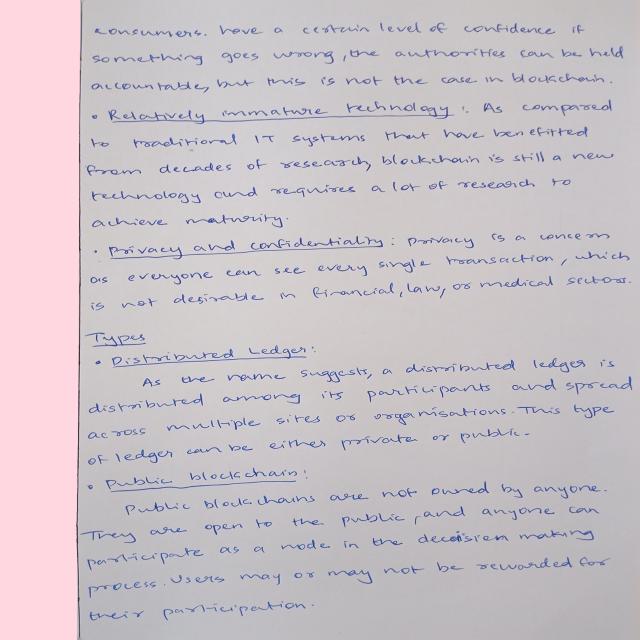 consumers. have a certain level of confidence if
something goes wrong, the authorities can be held
accountable, but this is not the case in blockchain.
• Relatively immature technology: As compared
to traditional IT systems that have benefitted
from decades of research, blockchain is still a new
technology and requires a lot of research to
achieve maturity.
• Privacy and confidentiality: Privacy is a concern
as everyone can see every single transaction, which
is not desirable in financial, law, or medical sectors.
Types
• Distributed Ledger:
As the name suggests, a distributed ledger is
distributed among its participants and spread
across multiple sites or organisations. This type
of ledger can be either private or public.
• Public blockchain:
Public blockchains are not owned by anyone.
They are open to the public, and anyone can
participate as a node in the decision making
process. Users may or may not be rewarded for
their participation.